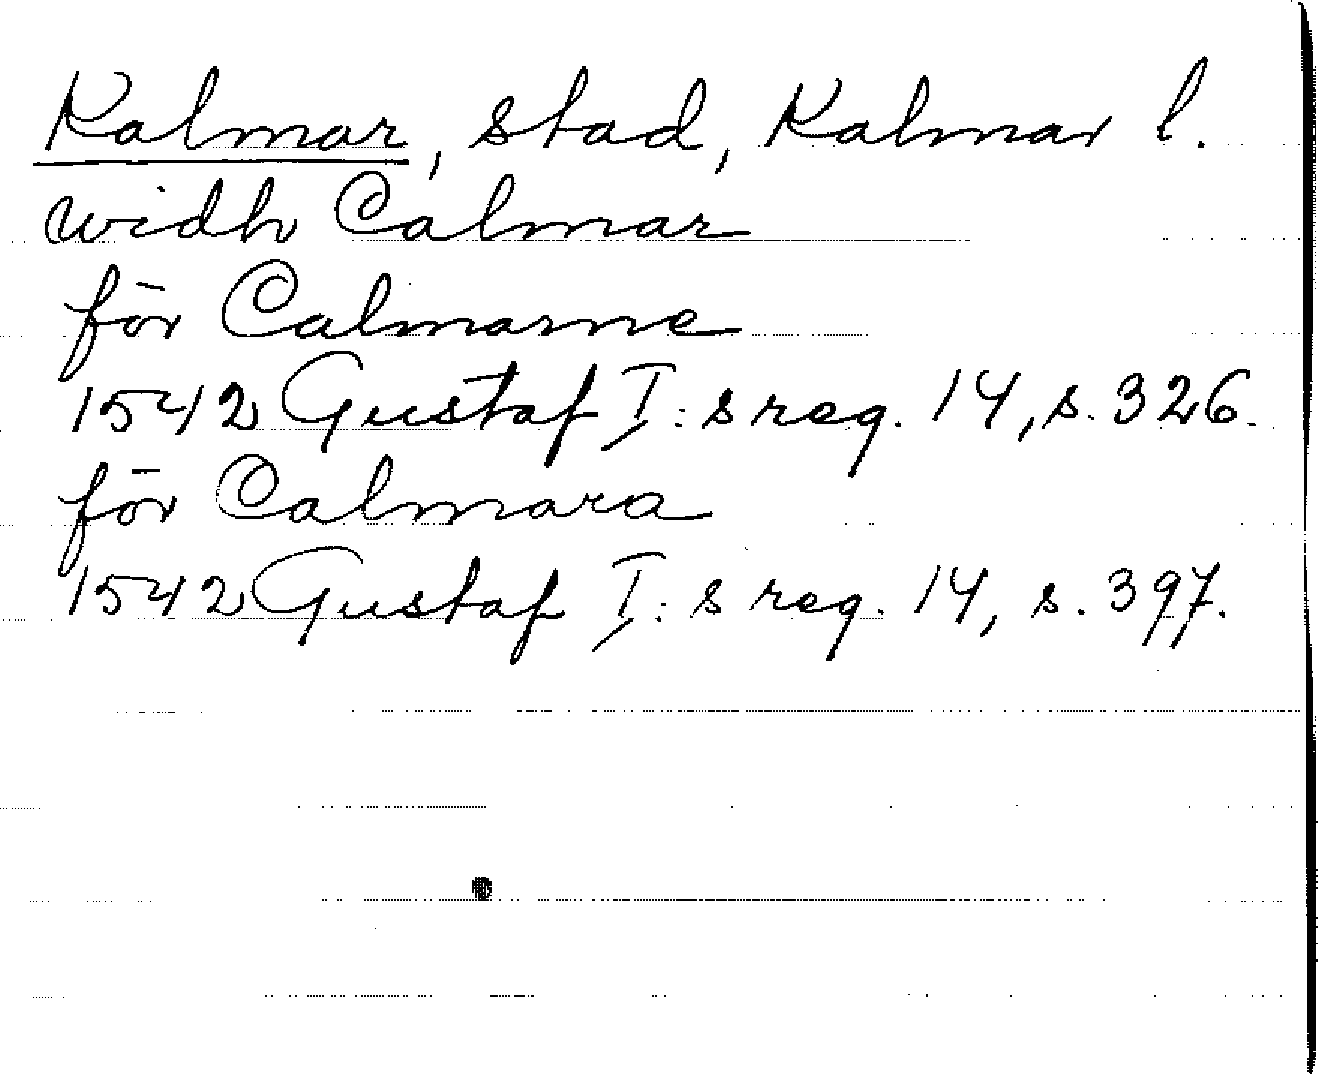 Kalmar, stad, Kalmar l.
widh Calmar
för Calmarne
1542 Gustaf I:s reg. 14, s. 326.
för Calmara
1542 Gustaf I:s reg. 14, s. 397.